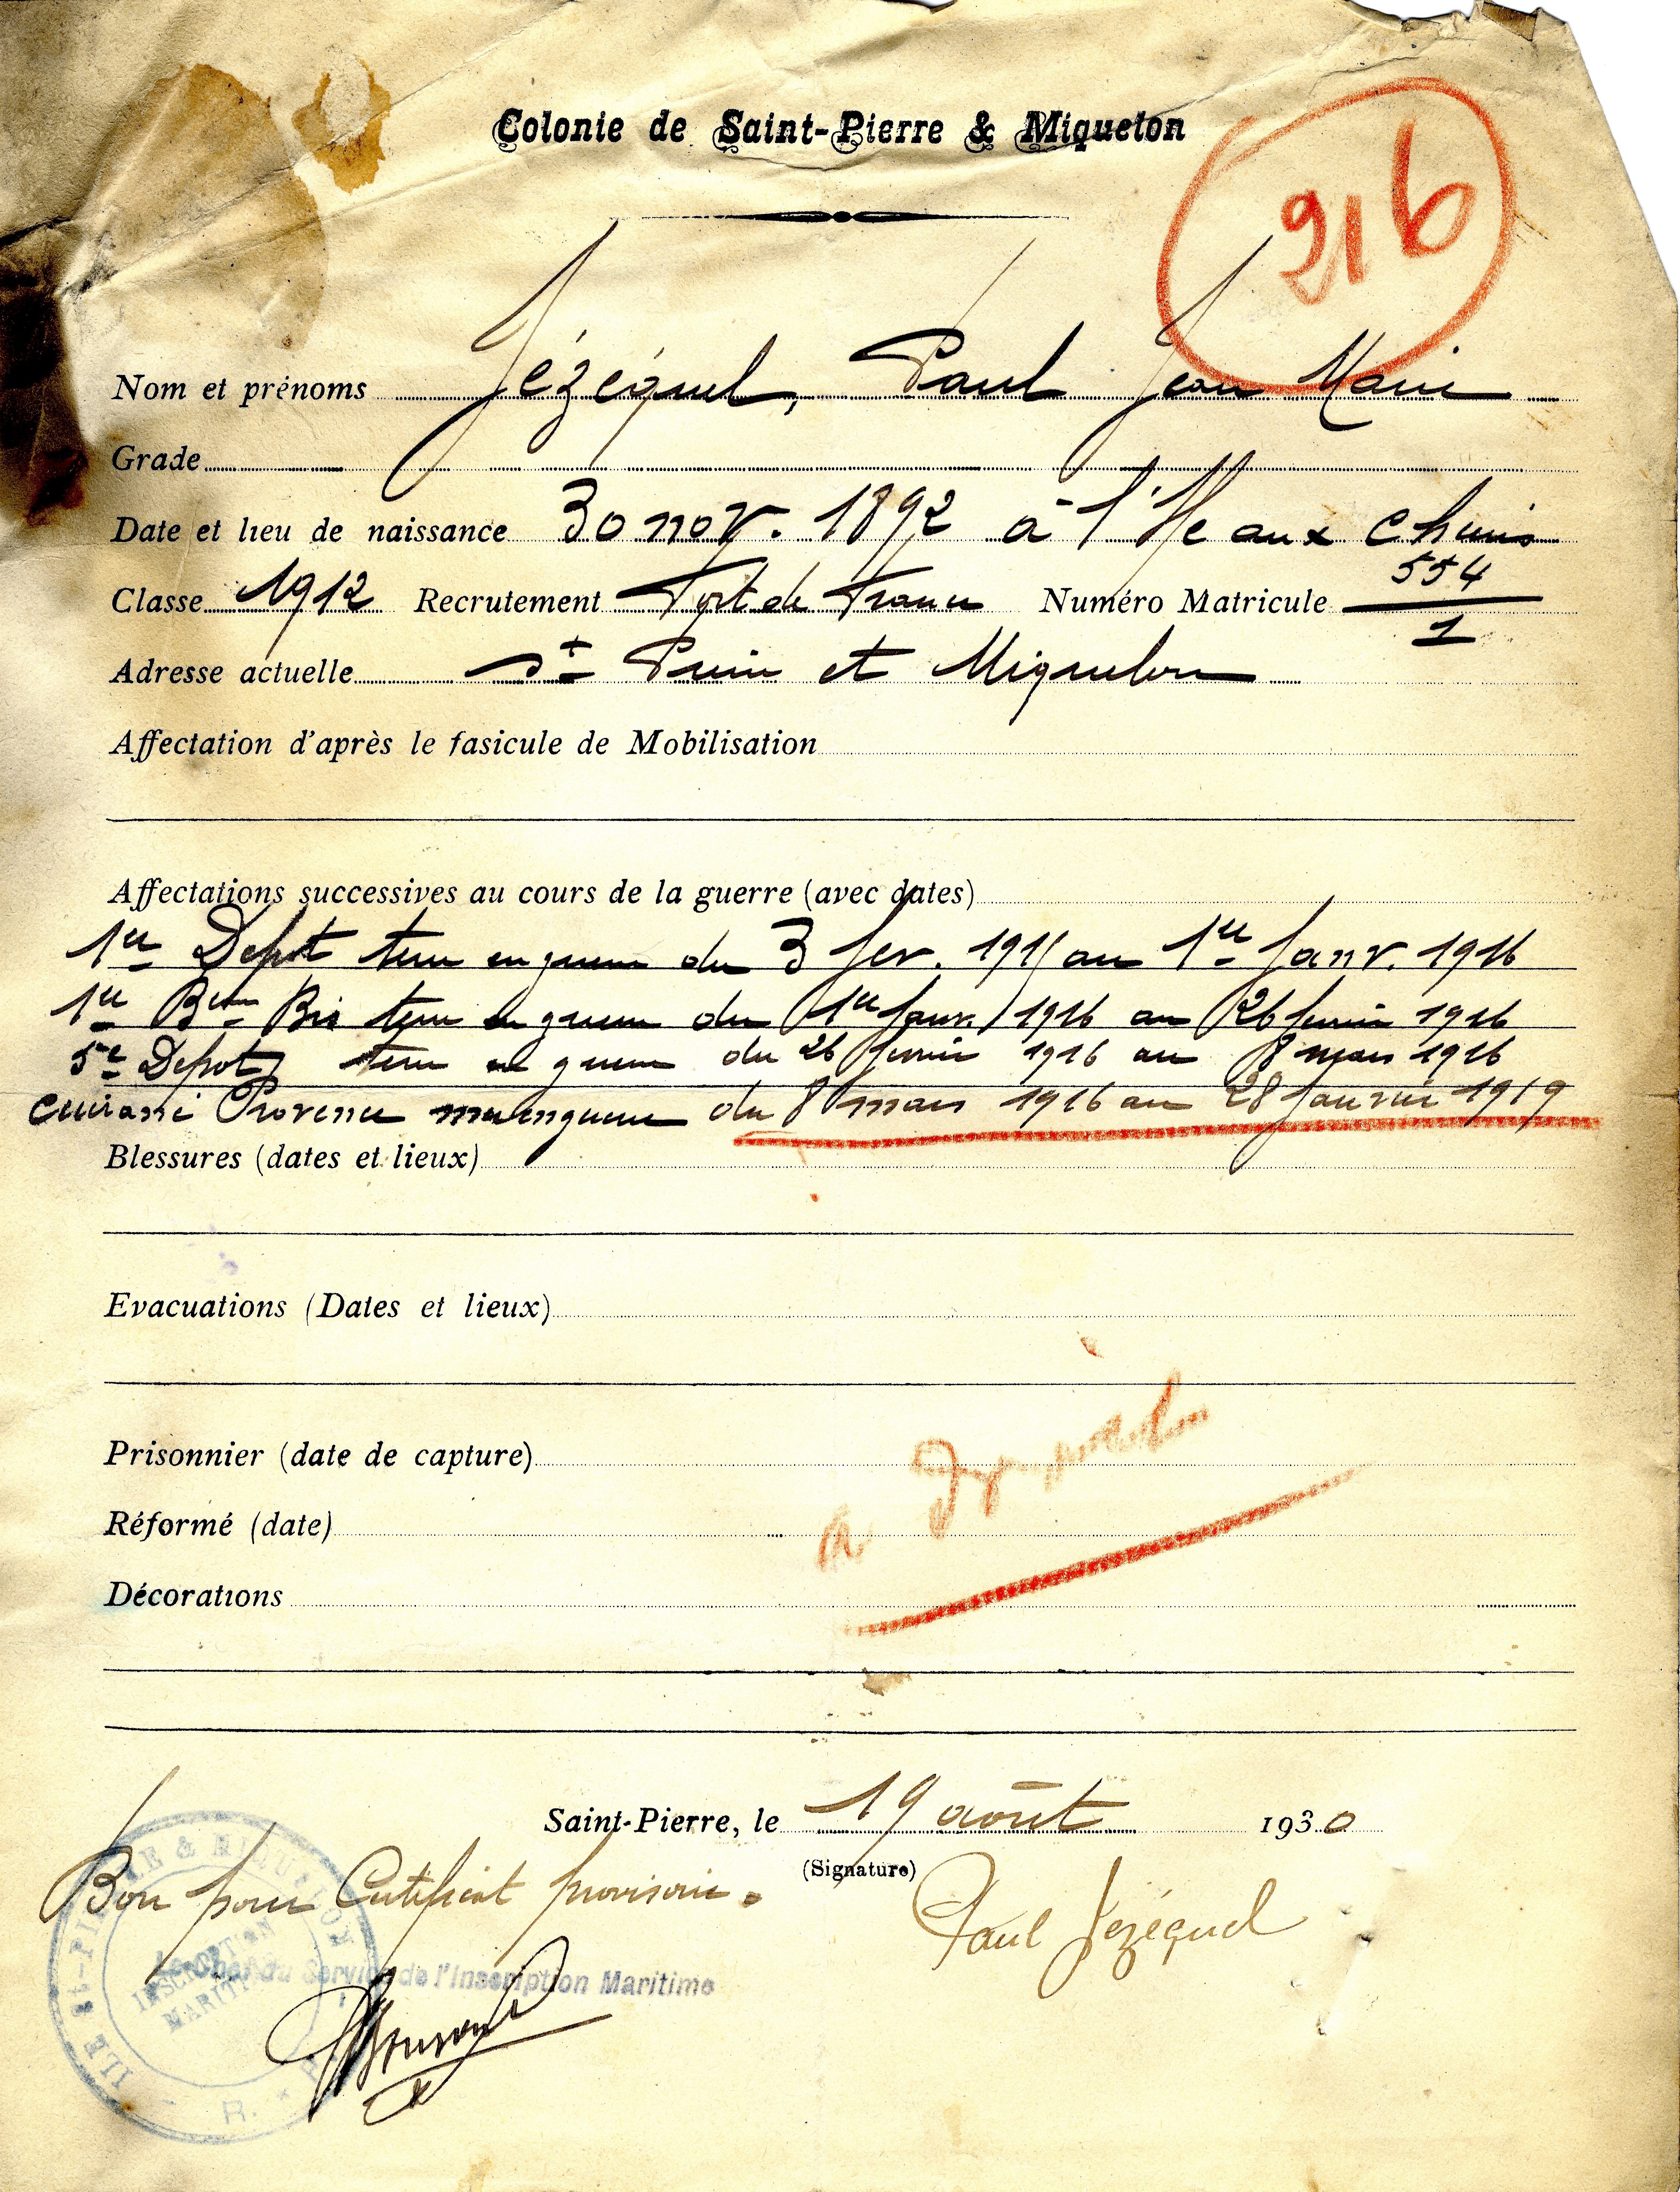 Colonie de Saint-Pierre & Miquelon
216
Nom et prénoms Jézéquel, Paul Jean Marie
Grade
Date et lieu de naissance 30 nov. 1892 à l'Ile aux Chiens
Classe 1912 Recrutement Fort de France Numéro Matricule 554
1
Adresse actuelle St Pierre et Miquelon
Affectation d'après le fasicule de Mobilisation
Affectations successives au cours de la guerre (avec dates)
1er Depot terre en guerre du 3 fev. 1915 au 1er Janv. 1916
1er Bon Bis terre en guerre du 1er Janv. 1916 au 26 fevrier 1916
5e Depot terre en guerre du 26 fevrier 1916 au 8 mars 1916
Cuirassé Provence mer en guerre du 8 mars 1916 au 28 Janvier 1919
Blessures (dates et lieux)
Evacuations (Dates et lieux)
Prisonnier (date de capture)
Réformé (date)
Décorations
Saint-Pierre, le 19 août 1930
(Signature)
Bon pour Certificat provisoire.
Paul Jézéquel
Le Chef du Service de l'Inscription Maritime
ILE St-PIERRE & MIQUELON
INSCRIPTION
MARITIME
R.